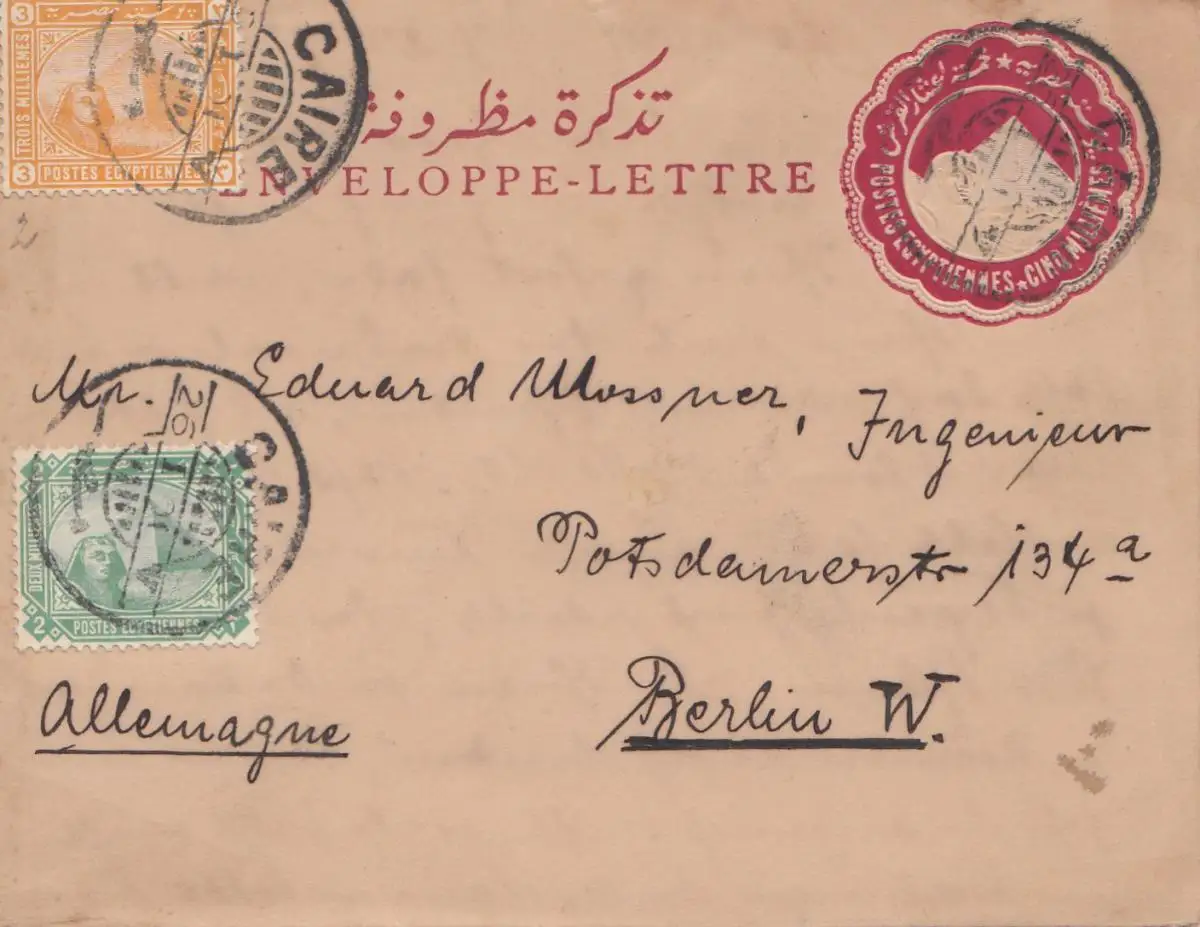 3
TROIS MILLIEMES
3 POSTES EGYPTIENNES ٣
CAIRE
تذكرة مظروفة
ENVELOPPE-LETTRE
خمسة اعشار القرش
POSTES EGYPTIENNES ★ CINQ MILLIEMES
2
Mr. Eduard Mossner, Ingenieur
26 I
DEUX MILLIEMES
2 POSTES EGYPTIENNES ٢
Potsdamerstr 134 a
Allemagne
Berlin W.